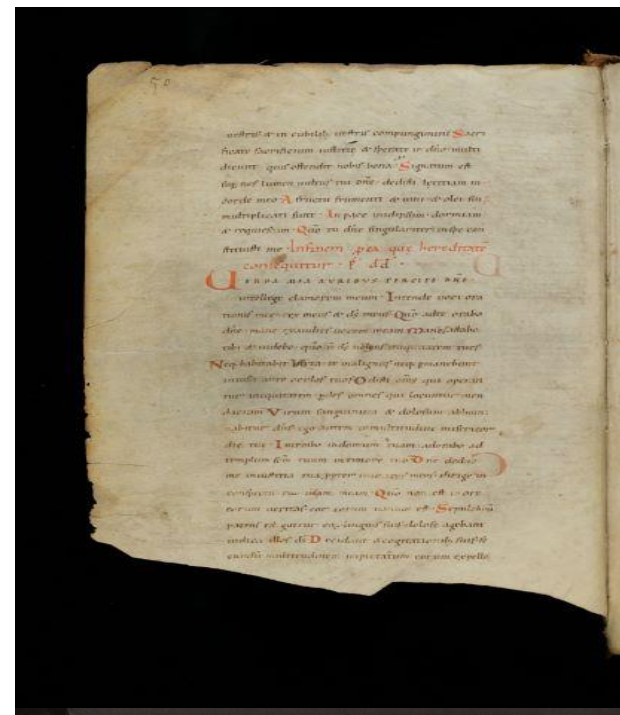 50
uestris & in cubilib; uestris compungimini Sacri
ficate sacrificium iustitię & sperate in dño multi
dicunt quis ostendit nobis bona Signatum est
sup nos lumen uultus tui dñe dedisti lętitiam in
corde meo A fructu frumenti & uini & olei sui
multiplicati sunt In pace in idipsum dormiam
& requiescam Quo tu dñe singulariter in spe con
stituisti me In finem p ea quę hereditatē
consequitur pſ dd
UERBA MEA AURIBUS PERCIPE DÑE
intellege clamorem meum Intende uoci ora
tionis meę rex meus & dſ meus Quo ad te orabo
dñe mane exaudies uocem meam Mane astabo
tibi & uidebo quo n dſ uolens iniquitatem tu es
Neq; habitabit iuxta te malignus neq; pmanebunt
iniusti ante oculos tuos Odisti oms qui operan
tur iniquitatem pdes omnes qui locuntur men
dacium Virum sanguinum & dolosum abhomi
nabitur dñs ego autem in multitudine misericor
dię tuę Introibo in domum tuam adorabo ad
templum scm tuum in timore tuo Dñe deduc
me in iustitia tua ppter inimicos meos dirige in
conspectu tuo uiam meam Quo non est in ore
eorum ueritas cor eorum uanum est Sepulchrū
patens est guttur eoꝝ linguis suis dolose agebant
iudica illos dſ Decidant a cogitationib; suis sc
cundū multitudinem impietatum eorum expelle